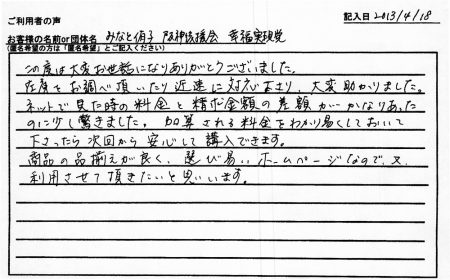 ご利用者の声
記入日 2013/4/18
お客様の名前or団体名 みなと侑子 阪神後援会 幸福実現党
(匿名希望の方は「匿名希望」とご記入ください)
この度は大変お世話になりありがとうございました。
在庫をお調べ頂いたり迅速に対応下さり、大変助かりました。
ネットで見た時の料金と精求金額の差額がかなりあった
のに少し驚きました。加算される料金をわかり易くしておいて
下さったら次回から安心して講入できます。
商品の品揃えが良く、選び易いホームページなので、又
利用させて頂きたいと思います。